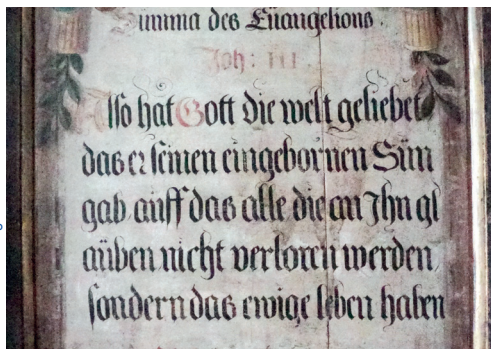 Summa des Euangelions.
Joh: III.
Also hat Gott die welt geliebet
das er seinen eingebornen Sün
gab auff das alle die an Ihn gl
aüben nicht verloren werden,
sondern das ewige leben haben